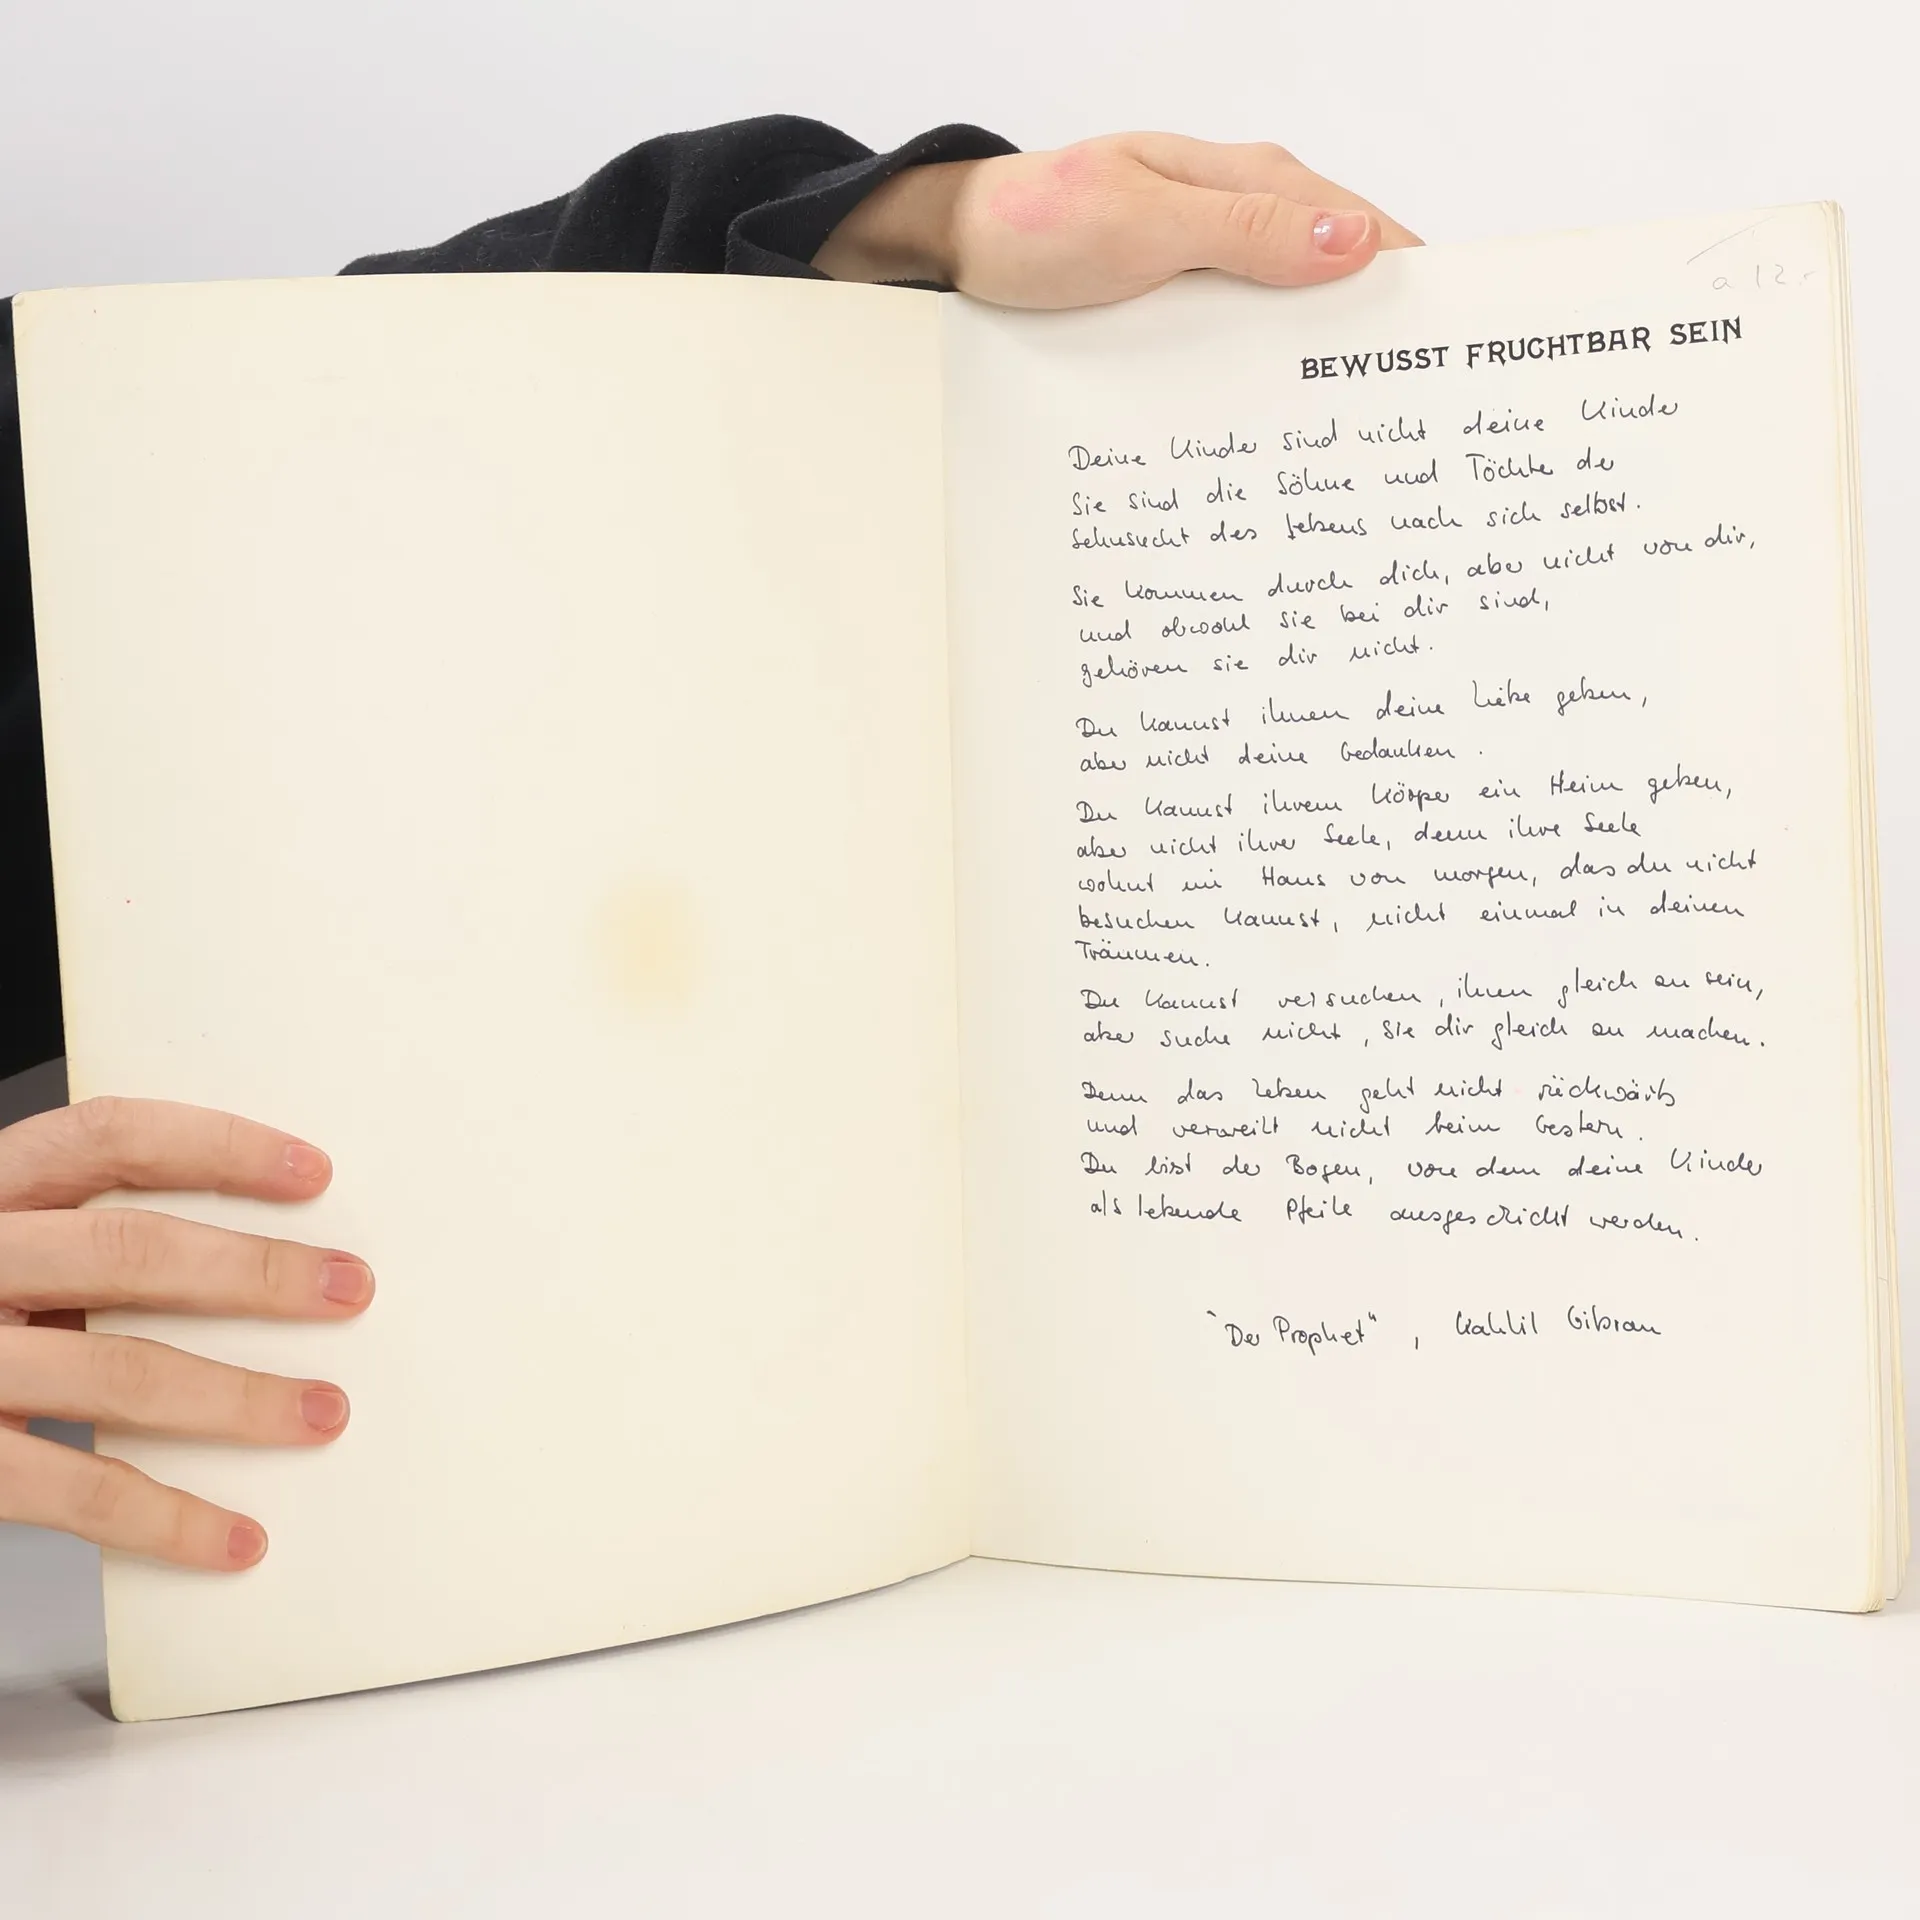 a 12.-
BEWUSST FRUCHTBAR SEIN
Deine Kinder sind nicht deine Kinder
Sie sind die Söhne und Töchter der
Sehnsucht des Lebens nach sich selbst.
Sie kommen durch dich, aber nicht von dir,
und obwohl sie bei dir sind,
gehören sie dir nicht.
Du kannst ihnen deine Liebe geben,
aber nicht deine Gedanken.
Du kannst ihrem Körper ein Heim geben,
aber nicht ihrer Seele, denn ihre Seele
wohnt im Haus von morgen, das du nicht
besuchen kannst, nicht einmal in deinen
Träumen.
Du kannst versuchen, ihnen gleich zu sein,
aber suche nicht, sie dir gleich zu machen.
Denn das Leben geht nicht rückwärts
und verweilt nicht beim Gestern.
Du bist der Bogen, von dem deine Kinder
als lebende Pfeile ausgeschickt werden.
"Der Prophet", Kahlil Gibran